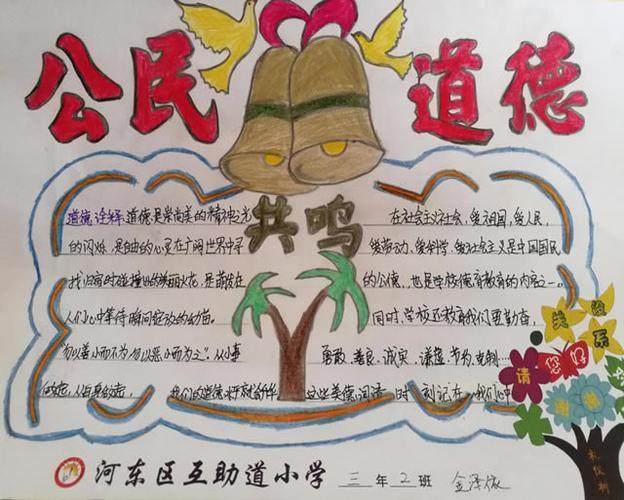 公民 道德
共鸣
道德诠释:道德是崇高美的精神之光
的闪烁,是自由的心灵在广阔世界中寻
找归宿时碰撞出的绚丽火花,是萌发在
人们心中等待瞬间绽放的幼苗。
“勿以善小而不为,勿以恶小而为之”。从小事
做起,从自身做起,
在社会主义社会,爱祖国,爱人民,
爱劳动、爱科学、爱社会主义是中国国民
的公德,也是学校德育教育的内容之一。
同时,学校还教育我们要勤奋,
勇敢、善良、诚实、谦虚、节约、
这些美德,同学 时刻记在 我们心中
我们的道德水平就会
请
您好
谢谢
没关系
礼仪树
河东区互助道小学 三年2班